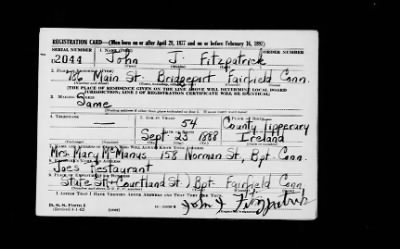 REGISTRATION CARD—(Men born on or after April 28, 1877 and on or before February 16, 1897)
SERIAL NUMBER 1. NAME (Print) ORDER NUMBER
U 2044 John J. Fitzpatrick
2. PLACE OF RESIDENCE (Print)
186 Main St. Bridgeport Fairfield Conn.
[THE PLACE OF RESIDENCE GIVEN ON THE LINE ABOVE WILL DETERMINE LOCAL BOARD
JURISDICTION; LINE 2 OF REGISTRATION CERTIFICATE WILL BE IDENTICAL]
3. MAILING ADDRESS
Same
4. TELEPHONE 5. AGE IN YEARS 6. PLACE OF BIRTH
— 54 County Tipperary
DATE OF BIRTH
Sept. 23 1888 Ireland
7. NAME AND ADDRESS OF PERSON WHO WILL ALWAYS KNOW YOUR ADDRESS
Mrs. Mary McManus 158 Norman St., Bpt. Conn.
8. EMPLOYER'S NAME AND ADDRESS
Joes Restaurant
9. PLACE OF EMPLOYMENT OR BUSINESS
State St.-Courtland St.) Bpt. Fairfield Conn.
I AFFIRM THAT I HAVE VERIFIED ABOVE ANSWERS AND THAT THEY ARE TRUE.
D. S. S. Form 1
(Revised 4-1-42) (over) John J. Fitzpatrick